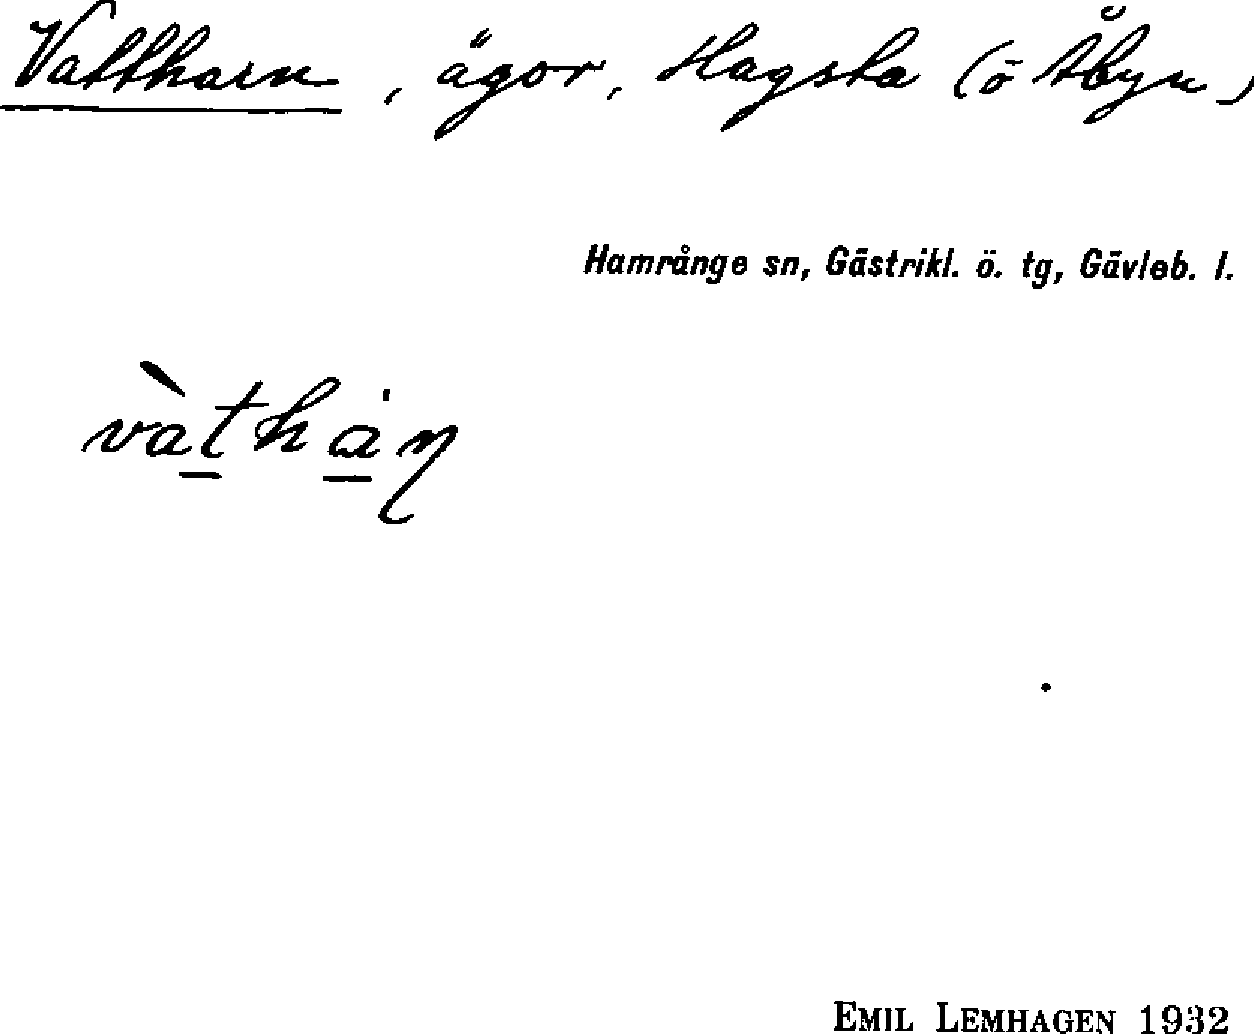 Vattharn, ägor, Hagsta (ö Åbyn)
Hamrånge sn, Gästrikl. ö. tg, Gävleb. l.
vàt̠hȧ̠ɳ
EMIL LEMHAGEN 1932